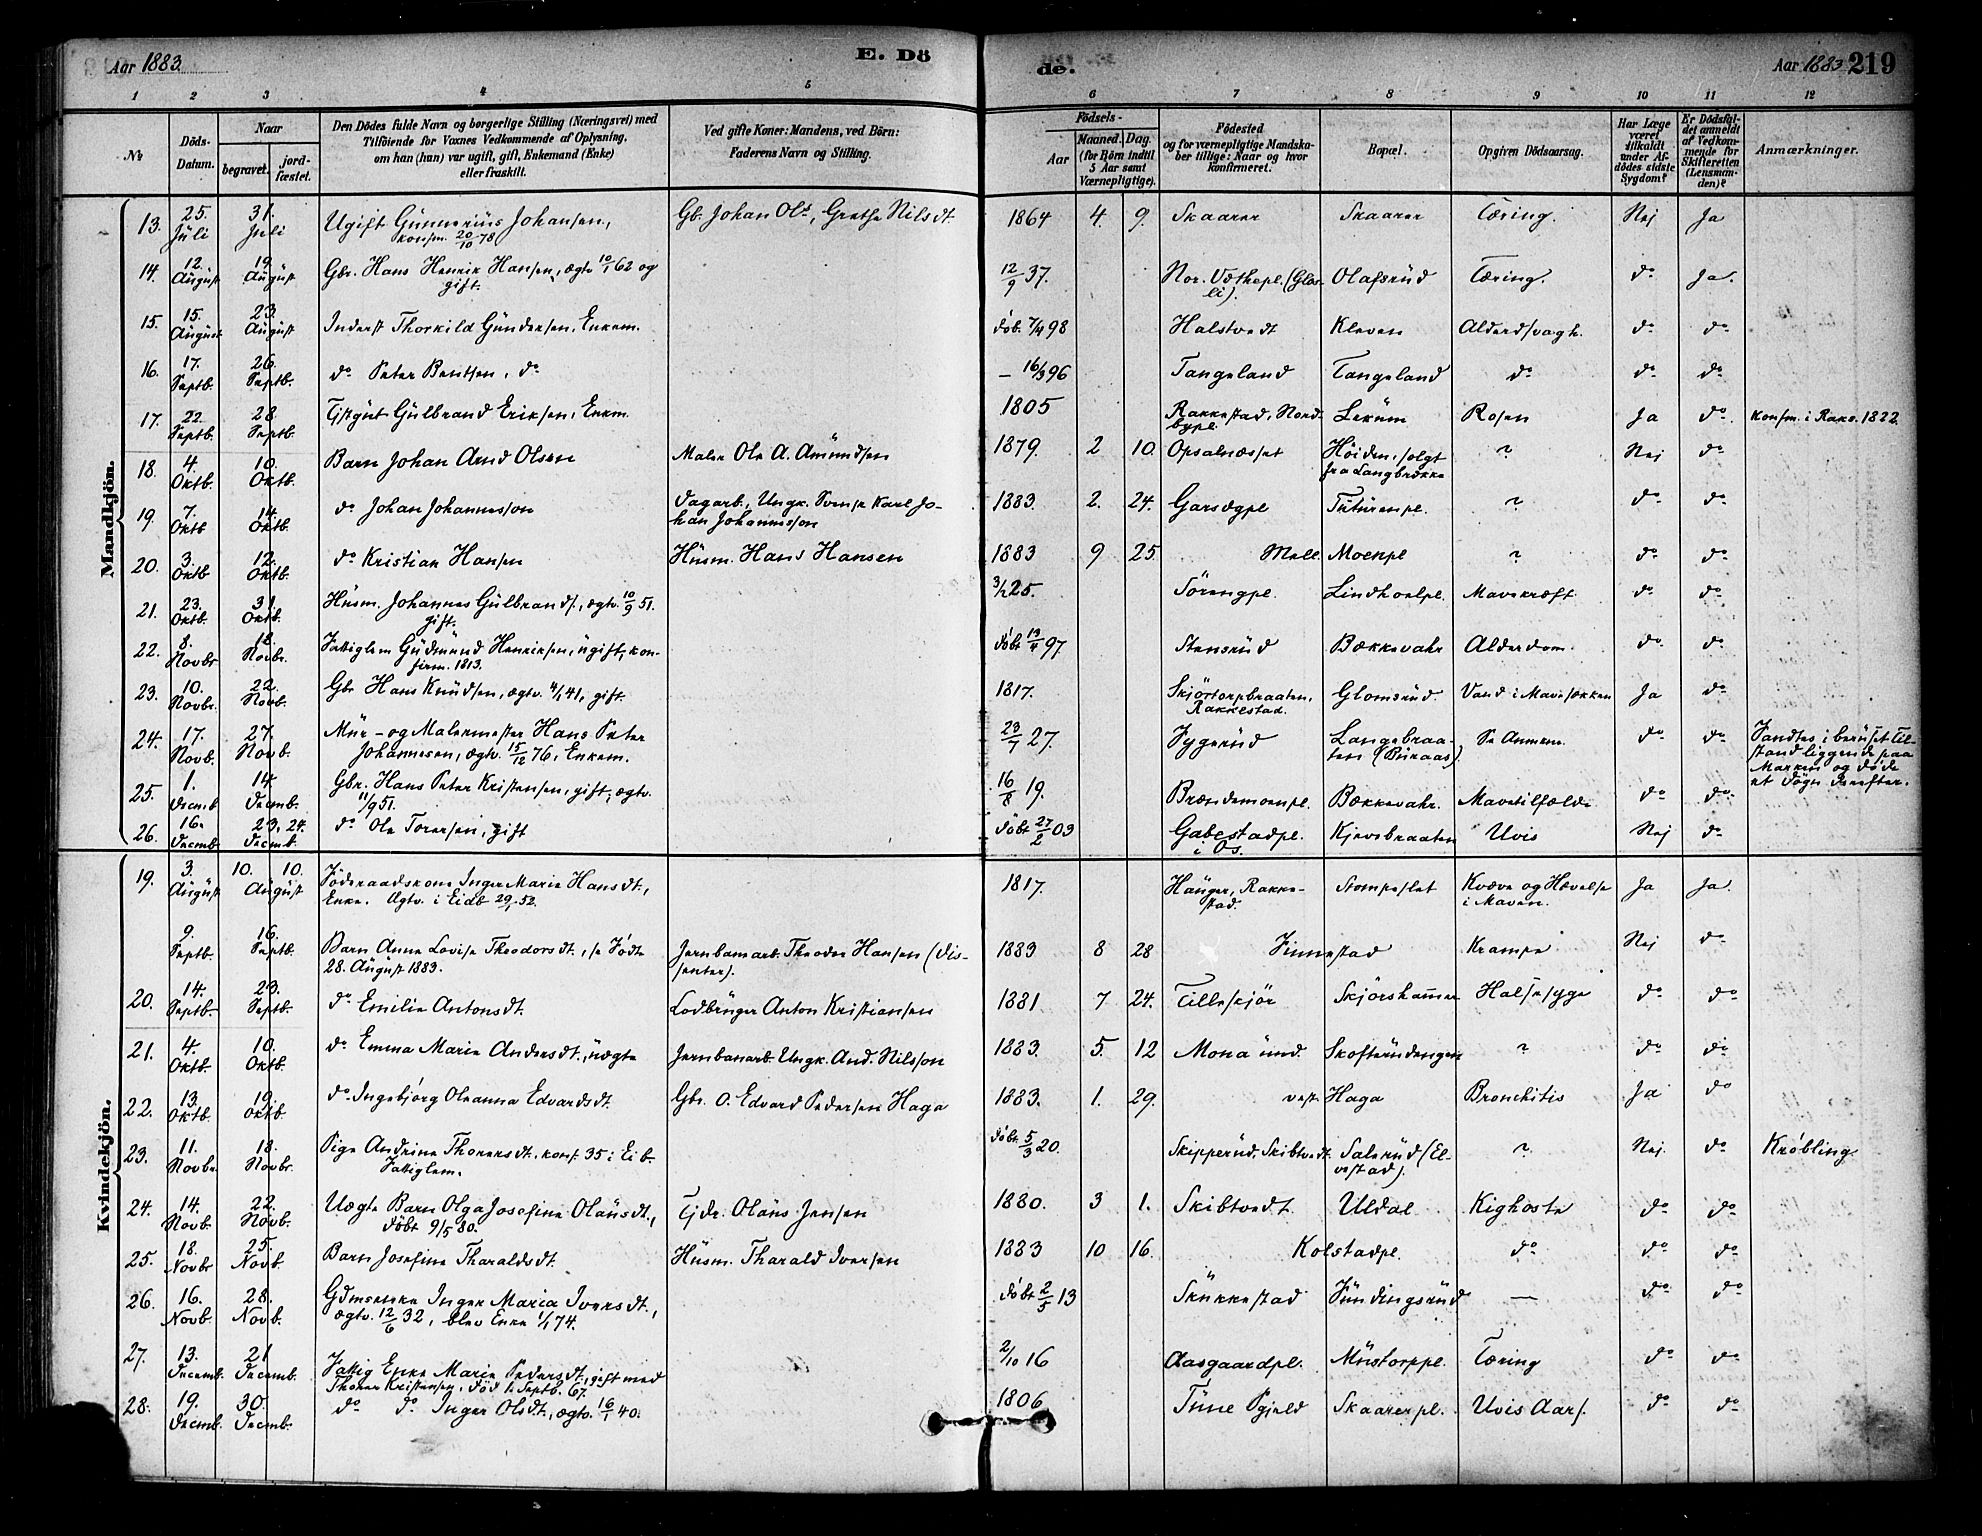 Aar 1883.
E. Dö
de.
Aar 1883
219
1 2 3 4 5 6 7 8 9 10 11 12
No
Döds-Datum.
Naar
begravet.
jord-fæstet.
Den Dödes fulde Navn og borgerlige Stilling (Næringsvei) med
Tilföiende for Voxnes Vedkommende af Oplysning,
om han (hun) var ugift, gift, Enkemand (Enke)
eller fraskilt.
Ved gifte Koner: Mandens, ved Börn:
Faderens Navn og Stilling.
Födsels-
Aar
Maaned. Dag.
(for Börn indtil
5 Aar samt
Værnepligtige).
Födested
og for værnepligtige Mandska-
ber tillige: Naar og hvor
konfirmeret.
Bopæl.
Opgiven Dödsaarsag.
Har Læge
været
tilkaldt
under Af-
dödes sidste
Sygdom?
Er Dödsfal-
det anmeldt
af Vedkom-
mende for
Skifteretten
(Lensman-
den)?
Anmærkninger.
Mandkjön.
13. 25. Juli 31. Juli Ugift Gunnerius Johansen, konfm. 20/10 78 Gb. Johan Ols., Grethe Nilsdt. 1864 4. 9. Skaarer Skaarer Tæring. Nej Ja
14. 12. August 19. August Gbr. Hans Henrik Hansen, ægtv. 10/1 62 og gift. 12/9 37. Nor. Vethepl. (Glos-li). Olafsrud Tæring. do Ja.
15. 15. August 23. August Inderst Thorkild Gundersen, Enkem. döb. 7/4 98 Halstvedt Kleven Alderdsvagh. do do
16. 17. Septb. 26. Septb. do Peter Bentsen, do - 16/3 96 Tangeland Tangeland do do do
17. 22. Septb. 28. Septb. Tjstgut Gulbrand Eriksen, Enkm. 1805 Rakkestad, Nord-bypl. Lekum Rosen Ja do konfm. i Raks. 1822.
18. 4. Oktb. 10. Oktb. Barn Johan Arnd Olsen Maler Ole A. Amundsen 1879. 2 10. Opsalnæsset Höiden, solgt fra Langbrække ? Nej do
19. 7. Oktb 14. Oktb. do Johan Johannesson Dagarb., Ungk. Svensk Karl Jo-han Johannesson 1883. 2. 24. Garsegpl Tuturenpl. ? do do
20. 3. Oktb 12. Oktb. do Kristian Hansen Husm. Hans Hansen 1883 9 25. Mell. Moenpl ? do do
21. 23. Oktb. 31. Oktb. Husm. Johannes Gulbrands., ægtv. 10/9 51. gift. 3/2 25. Sörengpl. Lindholpl. Mavekræft do do
22. 8. Novbr 18. Novbr. Fattiglem Gudmund Henriksen, ugift, kon-firm. 1813. döbt 13/4 97 Stensrud Bækkevahr Alderdom. do do
23. 10. Novbr. 22. Novb. Gbr Hans Knudsen, ægtv. 4/1 41, gift. 1817. Skjörtorpbraaten, Rakkestad. Glomsrud. Vand i Mavesækken Ja do
24. 17. Novb. 27. Novb. Mur- og Malermester Hans Peter Johannesen, ægtv. 15/12 76, Enkem. 23/7 27. Fygerud Langebraa-ten (Buraas) Se Anmrkn. do do Fandtes i beruset Til-stand liggende paa Marken og döde et Dögn derefter.
25. 1. Decmb 14. Decmb. Gbr. Hans Peter Kristensen, gift, ægtv. 11/9 51. 16/8 19. Brændemoenpl. Bækkevahr. Mavetilfælde do do
26. 16. Decmb 23, 24. Decmb. do Ole Torersen, gift döbt 27/2 03 Gabestadpl. i Os. Kjevsbraaten Uvis Nej do
Kvindekjön.
19. 3. August 10. 10. August Föderaadskone Inger Marie Hansdt., Enke. Ægtv. i Eidb 29/1 52. 1817. Hauger, Rakke-stad. Stompeslet Kvæve og Hævelse i Maven. Ja Ja.
9. Septb. 16. Septb. Barn Anna Lovise Theodorsdt., se Födte 28. August 1883. Jernbanarb. Theodor Hansen (Dis-senter). 1883 8 28 Finnestad Krampe Nej do
20. 14. Septb. 23. Septb. do Emilie Antonsdt. Lodbruger Anton Kristiansen 1881 7 24. Tilleskjör Skjörshammer Halsesyge do do
21. 4. Oktb. 10. Oktb. do Emma Marie Andersdt., uægte Jernbanarb. Ungk. And. Nilsson 1883. 5. 12 Mona und. Skofterudengen ? do do
22. 13. Oktb. 19. Oktb. do Ingebjörg Oleanna Edvardsdt. Gbr. O. Edvard Pedersen Haga 1883. 1. 29. vest. Haga Bronchitis Ja do
23. 11. Novbr. 18. Novbr. Pige Andrine Thorersdt., konf. 35 i Eidb. Fattiglem. döbt. 5/3 20. Skipperud, Skibtvedt Salerud (El-vestad). ? Nej. do Kröbling.
24. 14. Novb. 22. Novb. Uægte Barn Olga Josefine Olausdt., döbt 9/5 80. Tjdr. Olaus Jensen 1880. 3 1. Skibtvedt Uldal Kighoste do do
25. 18. Novbr 25. Novb. Barn Josefine Tharaldsdt. Husm. Tharald Iversen 1883 10 16. Kolstadpl. do do do
26. 16. Novb. 28. Novb. Gdmsenke Inger Maria Iversdt., ægtv. 12/6 32, blev Enke 1/1 74. döbt 2/5 13 Skukkestad Fundingsrud — do do
27. 13. Decemb. 21 Decemb. Fattig Enke Marie Pedersdt., gift med Thorer Kristensen, död 1 Septb. 67. 2/10 16 Aasgaardpl. Mustorppl. Tæring do do
28. 19. Decmb. 30. Decmb. do do Inger Olsdt., ægtv. 16/1 40. 1806 Tune Pgjeld Skaarerpl. Uvis Aars. do do